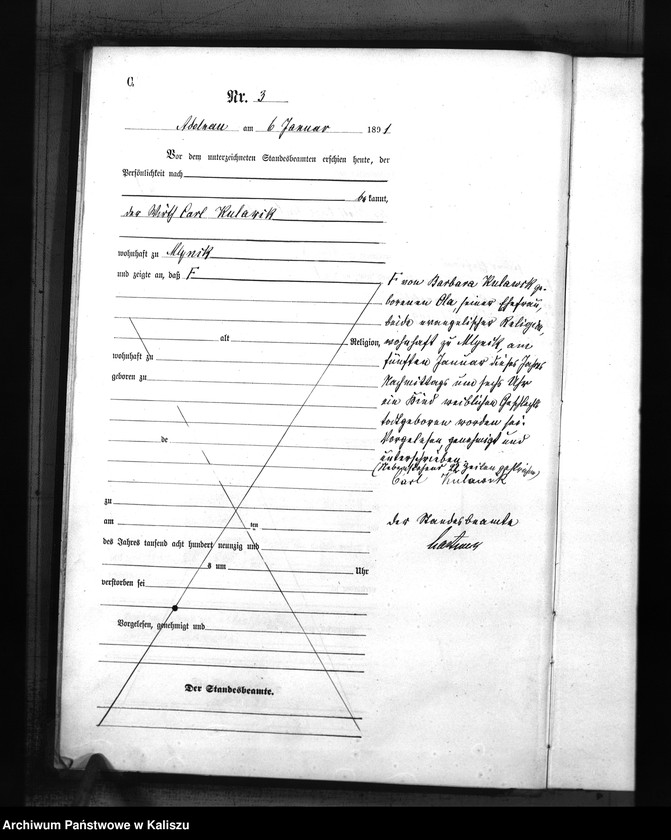 C.
Nr. 3
Adelnau am 6 Januar 1891.
Vor dem unterzeichneten Standesbeamten erschien heute, der
Persönlichkeit nach
be kannt,
der Wirth Carl Kulawik
wohnhaft zu Mlynik
und zeigte an, daß F
alt Religion,
wohnhaft zu
geboren zu
de
zu
am ten
des Jahres tausend acht hundert neunzig und
s um Uhr
verstorben sei
Vorgelesen, genehmigt und
Der Standesbeamte.
F von Barbara Kulawik ge-
borenen Ola, seiner Ehefrau,
beide evangelischer Religion,
wohnhaft zu Mlynik, am
fünften Januar dieses Jahres
Nachmittags um sechs Uhr
ein Kind weiblichen Geschlechts
todtgeboren worden sei.
Vorgelesen, genehmigt und
unterschrieben
(Nebenstehend 22 Zeilen gestrichen)
Carl Kulawik
Der Standesbeamte
Archiwum Państwowe w Kaliszu